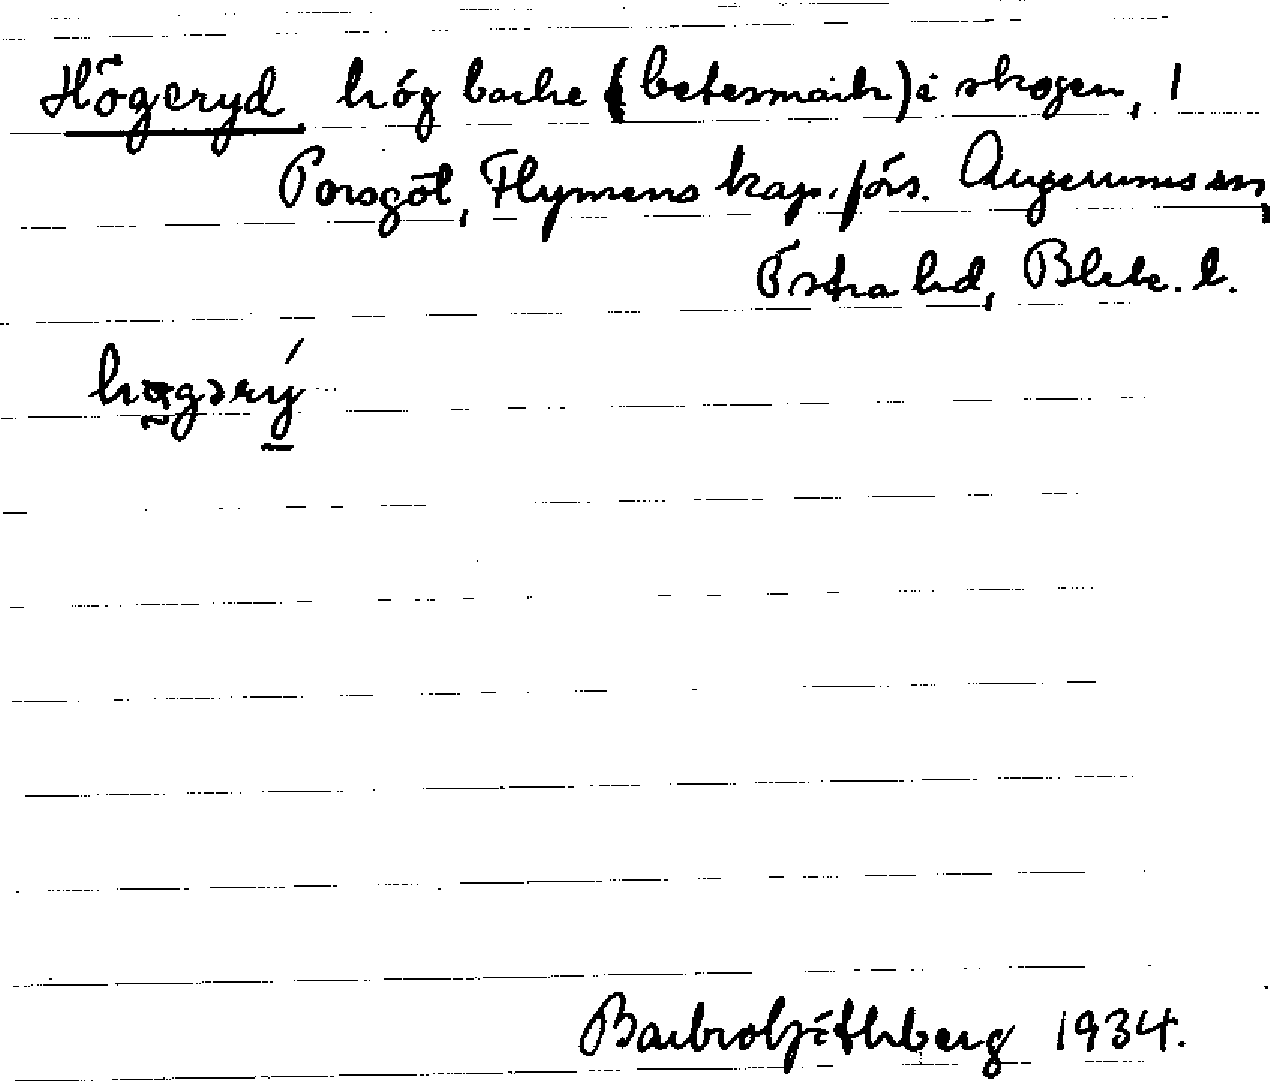 Högeryd hög backe (betesmark) i skogen, 1
Porsgöl, Flymens kap.förs. Augerums sn,
Östra hd, Blek. l.
høgərý
Barbro 1934.